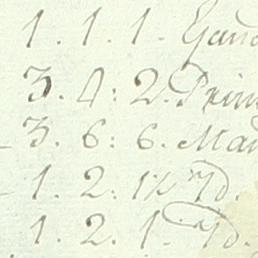 1. 1. 1.
3. 4: 2. Prin
3. 6: 6. Mau
1. 2: 12 Yd.
1. 2. 1. Yd.